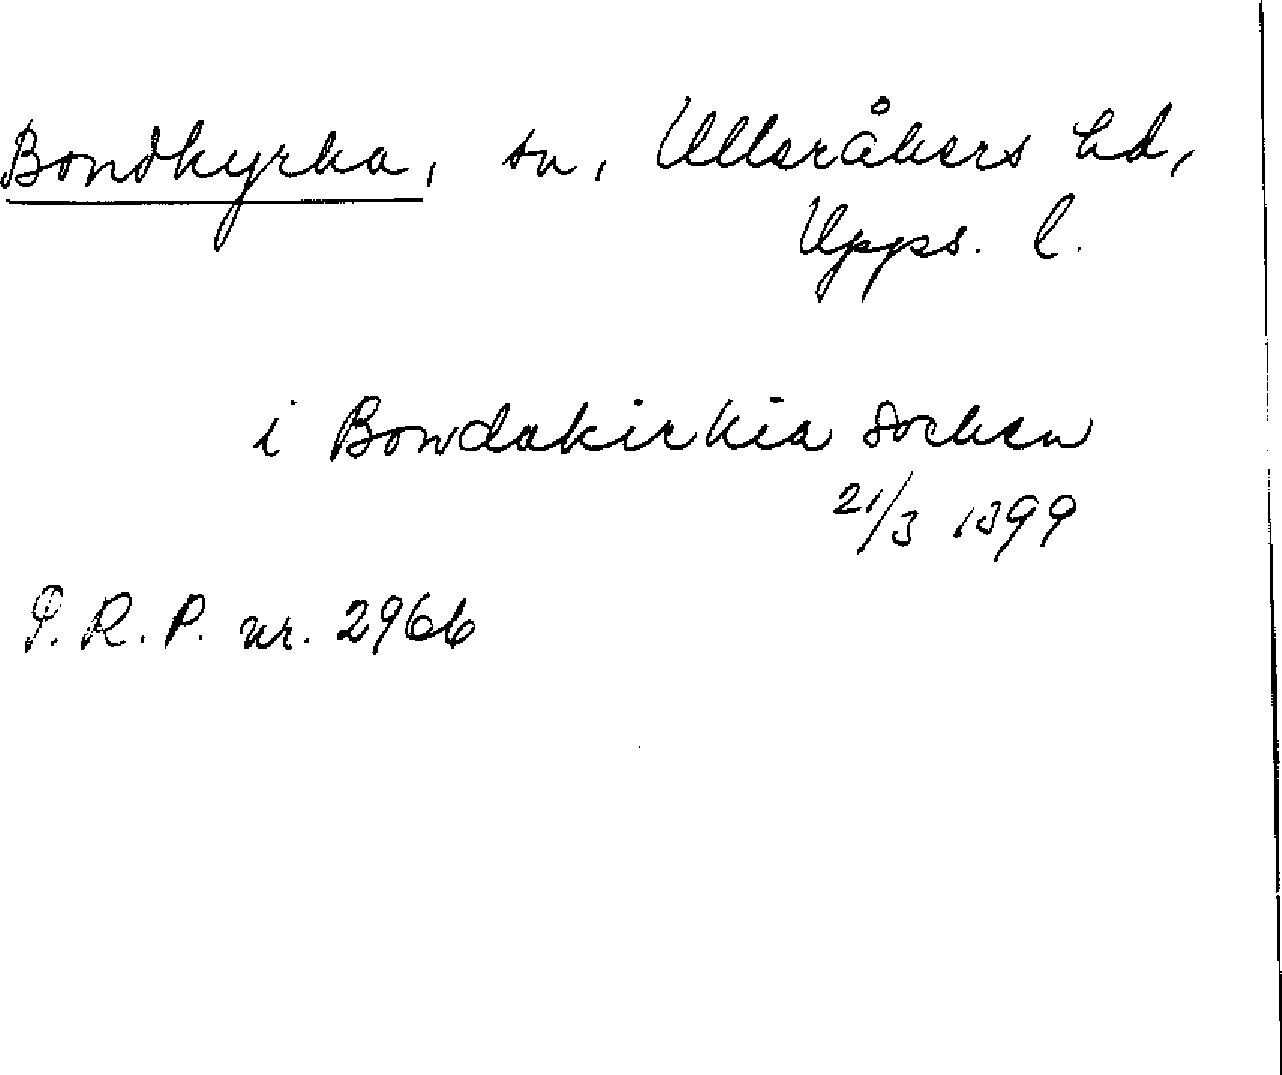 Bondkyrka, sn, Ulleråkers hd,
Upps. l.
i Bondakirkia socken
21/3 1399
P. R. P. nr. 2966